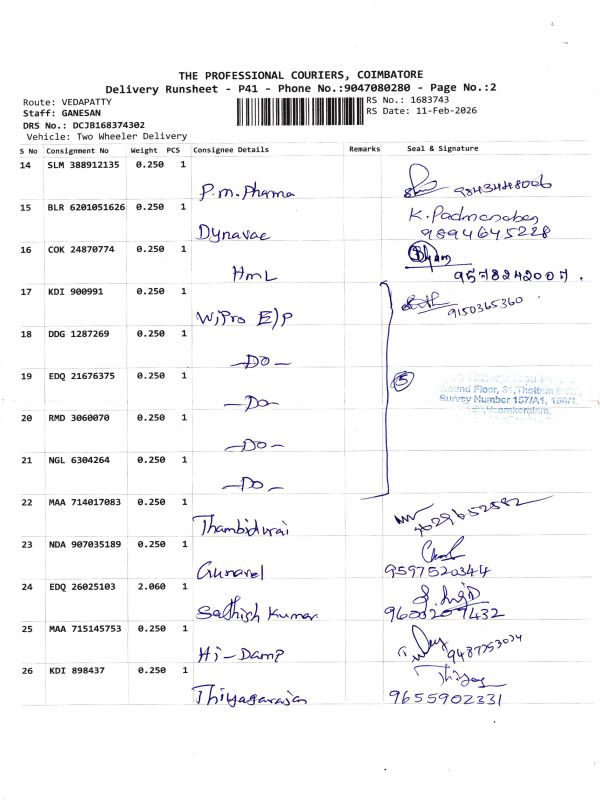 THE PROFESSIONAL COURIERS, COIMBATORE
Delivery Runsheet - P41 - Phone No.:9047080280 - Page No.:2
Route: VEDAPATTY RS No.: 1683743
Staff: GANESAN RS Date: 11-Feb-2026
DRS No.: DCJB168374302
Vehicle: Two Wheeler Delivery
S No Consignment No Weight PCS Consignee Details Remarks Seal & Signature
14 SLM 388912135 0.250 1
P.M. Pharma 9843448006
15 BLR 6201051626 0.250 1 K. Padmanaban
Dynavac 9894645228
16 COK 24870774 0.250 1
HML 9578242007.
17 KDI 900991 0.250 1
Wipro E/P 9150365360
18 DDG 1287269 0.250 1
-Do-
19 EDQ 21676375 0.250 1 5
-Do- Ground Floor, 31, Thottam
Survey Number 157/A1, 156/1,
20 RMD 3060070 0.250 1
-Do-
21 NGL 6304264 0.250 1
-Do-
22 MAA 714017083 0.250 1
Thambidurai 7629652582
23 NDA 907035189 0.250 1
Gunavel 9597520344
24 EDQ 26025103 2.060 1
Sathish Kumar 9600207432
25 MAA 715145753 0.250 1
Hi-Damp 9487253074
26 KDI 898437 0.250 1 Thiyag
Thiyagarajan 9655902331